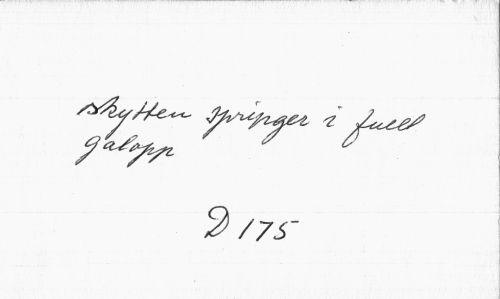 skytten springer i full
galopp
D 175